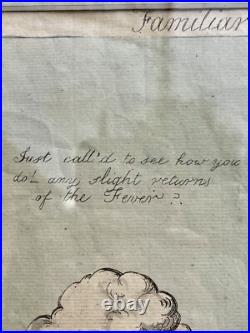 Familiar
Just call'd to see how you
do! any slight returns
of the Fever??